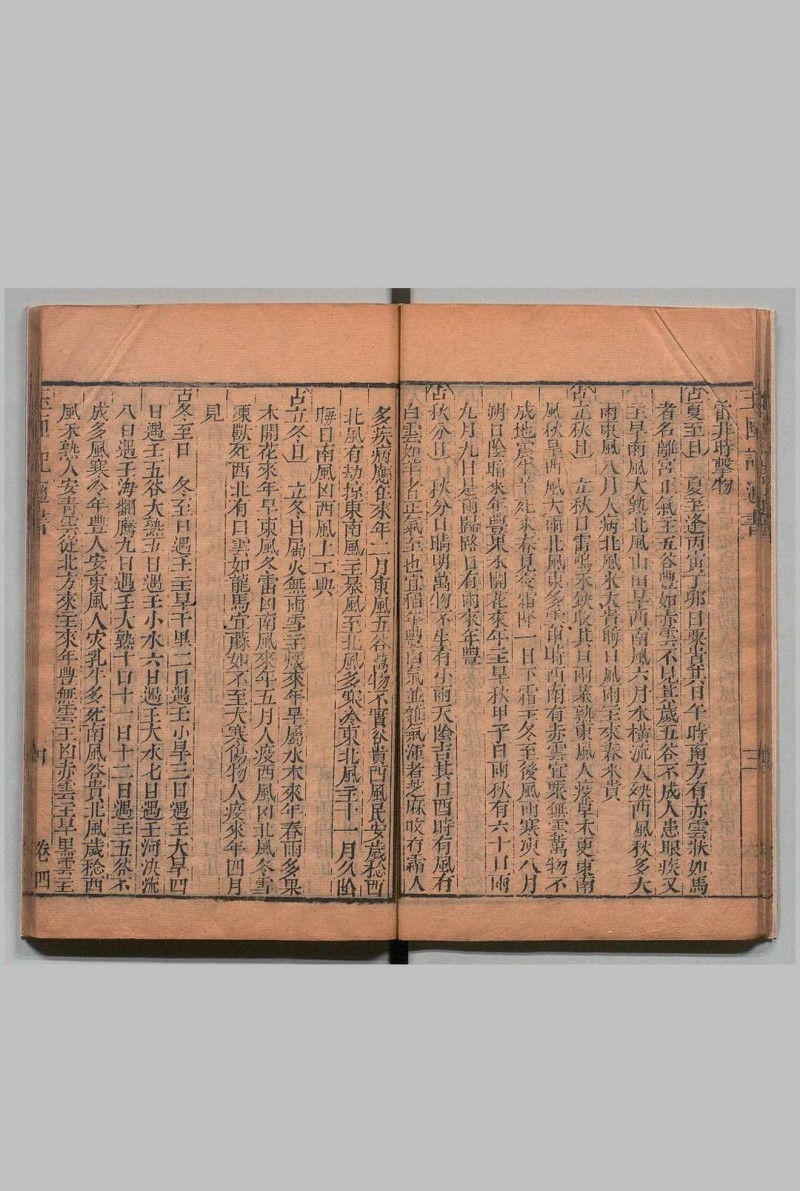 雷非時擊物
占夏至日 夏至逢丙寅丁卯日粟貴其日午時南方有赤雲狀如馬
者名離宮正氣主五谷豊如赤雲不見其歲五谷不成人患眼疾又
主旱南風大熱北風山田旱西南風六月水橫流人殃西風秋多大
雨東風八月人病北風米大貴晦日風雨主來春米貴
占立秋日 立秋日雷鳴禾鈌收其日雨菜熟東風人疫草木更東南
風秋旱西風大雨北風冬多雪申時西南有赤雲宜粟無雲萬物不
成地震牛羊死來春見 霜降一日下霜主冬至後風雨寒 八月
朔日陰晴來年豊果木開花來年主旱秋甲子日雨秋有六十日雨
九月九日是雨歸路日有雨來年豊
占秋分日 秋分日晴明萬物不生有小雨天陰吉其日酉時有風有
白雲如羊者正氣至也宜稻年豊 氣並雜氣渾者芝麻 有霜人
多疾病應在來年二月東風五谷萬物不實谷貴西風民安歲稔西
北風有劫掠東南風主暴風至北風多寒冷東北風至十一月久陰
晦日南風凶西風上工興
占立冬日 立冬日屬火無雨雪主煖來年旱屬水木來年春雨多果
木開花來年旱東風冬雷凶南風來年五月人疫西風凶北風冬雪
凍獸死西北有白雲如龍馬宜蔴如不至大寒傷物人疫來年四月
見
占冬至日 冬至日遇壬主旱千里二日遇壬小旱三日遇壬大旱四
日遇壬五谷大熟五日遇壬小水六日遇壬大水七日遇壬河決流
八日遇壬海翻騰九日遇壬大熟十日十一日十二日遇壬五谷不
成多風寒冷年豊人安東風人災乳牛多死南風谷貴北風歲稔西
風禾熟人安青雲從北方來主來年豊無雲主凶赤雲主旱黒雲主
玉匣記通書 三
玉匣記通書 四 卷四